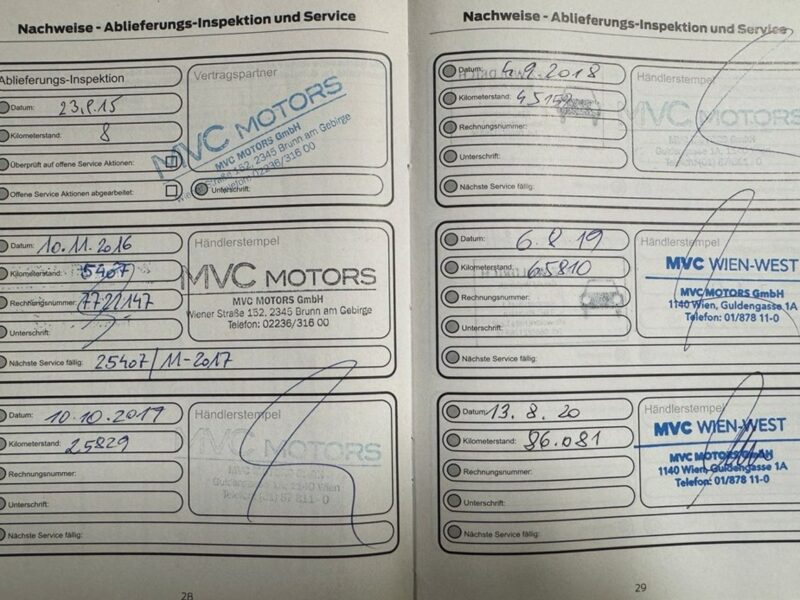 Nachweise - Ablieferungs-Inspektion und Service
Ablieferungs-Inspektion
Datum: 23.8.15
Kilometerstand: 8
Überprüft auf offene Service Aktionen:
Offene Service Aktionen abgearbeitet:
Vertragspartner
MVC MOTORS
MVC MOTORS GmbH
Wiener Straße 152, 2345 Brunn am Gebirge
Telefon: 02236/316 00
Unterschrift:
Datum: 10.11.2016
Kilometerstand: 5407
Rechnungsnummer: 7722147
Unterschrift:
Nächste Service fällig: 25407/11-2017
Händlerstempel
MVC MOTORS
MVC MOTORS GmbH
Wiener Straße 152, 2345 Brunn am Gebirge
Telefon: 02236/316 00
Datum: 10.10.2017
Kilometerstand: 25829
Rechnungsnummer:
Unterschrift:
Nächste Service fällig:
Händlerstempel
MVC MOTORS
28
Nachweise - Ablieferungs-Inspektion und Service
Datum: 9.2018
Kilometerstand:
Rechnungsnummer:
Unterschrift:
Nächste Service fällig:
Händlerstempel
MVC MOTORS
Datum: 6.8.19
Kilometerstand: 65810
Rechnungsnummer:
Unterschrift:
Nächste Service fällig:
Händlerstempel
MVC WIEN-WEST
MVC MOTORS GmbH
1140 Wien, Guldengasse 1A
Telefon: 01/878 11-0
Datum: 13.8.20
Kilometerstand: 86.081
Rechnungsnummer:
Unterschrift:
Nächste Service fällig:
Händlerstempel
MVC WIEN-WEST
MVC MOTORS GmbH
1140 Wien, Guldengasse 1A
Telefon: 01/878 11-0
29